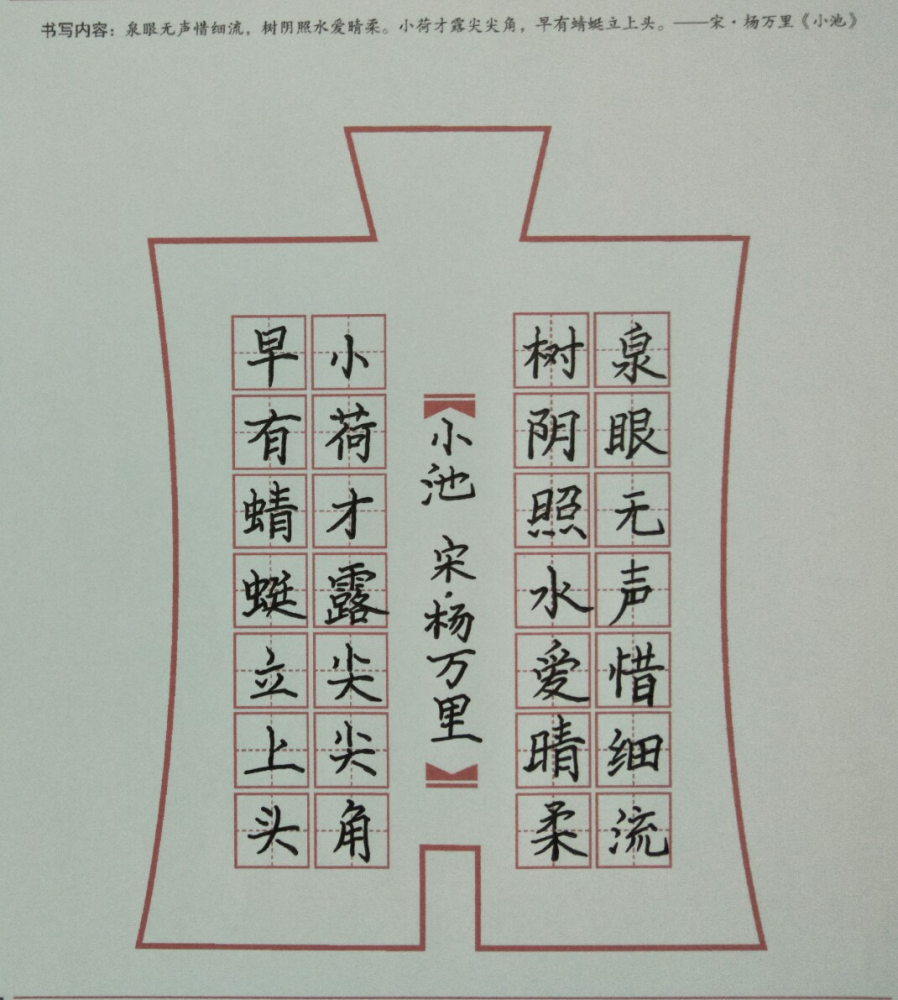 书写内容：泉眼无声惜细流，树阴照水爱晴柔。小荷才露尖尖角，早有蜻蜓立上头。——宋·杨万里《小池》
泉眼无声惜细流
树阴照水爱晴柔
小池 宋·杨万里
小荷才露尖尖角
早有蜻蜓立上头